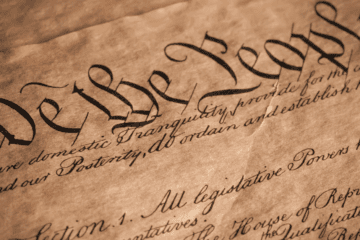 We the People
insure domestic Tranquility, provide for the
and our Posterity, do ordain and establish
Section. 1. All legislative Powers
Representatives.
The House of Repr
the Qualificat